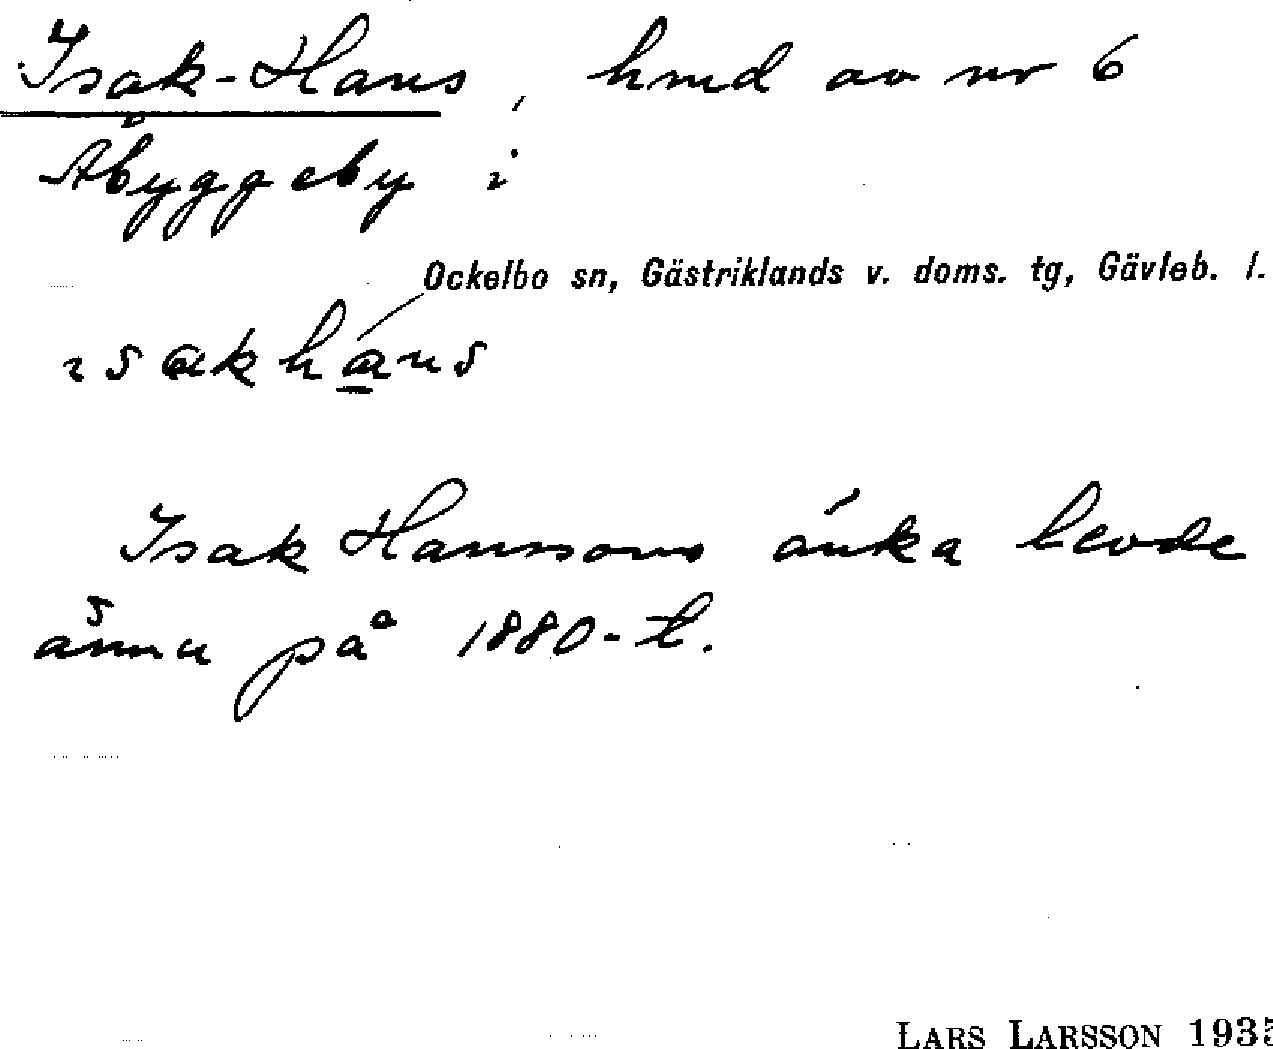 Isak-Hans, hmd av nr 6
Åbyggeby i
Ockelbo sn, Gästriklands v. doms. tg, Gävleb. l.
ısakháns
Isak Hanssons änka levde
ännu på 1880-t.
LARS LARSSON 1935